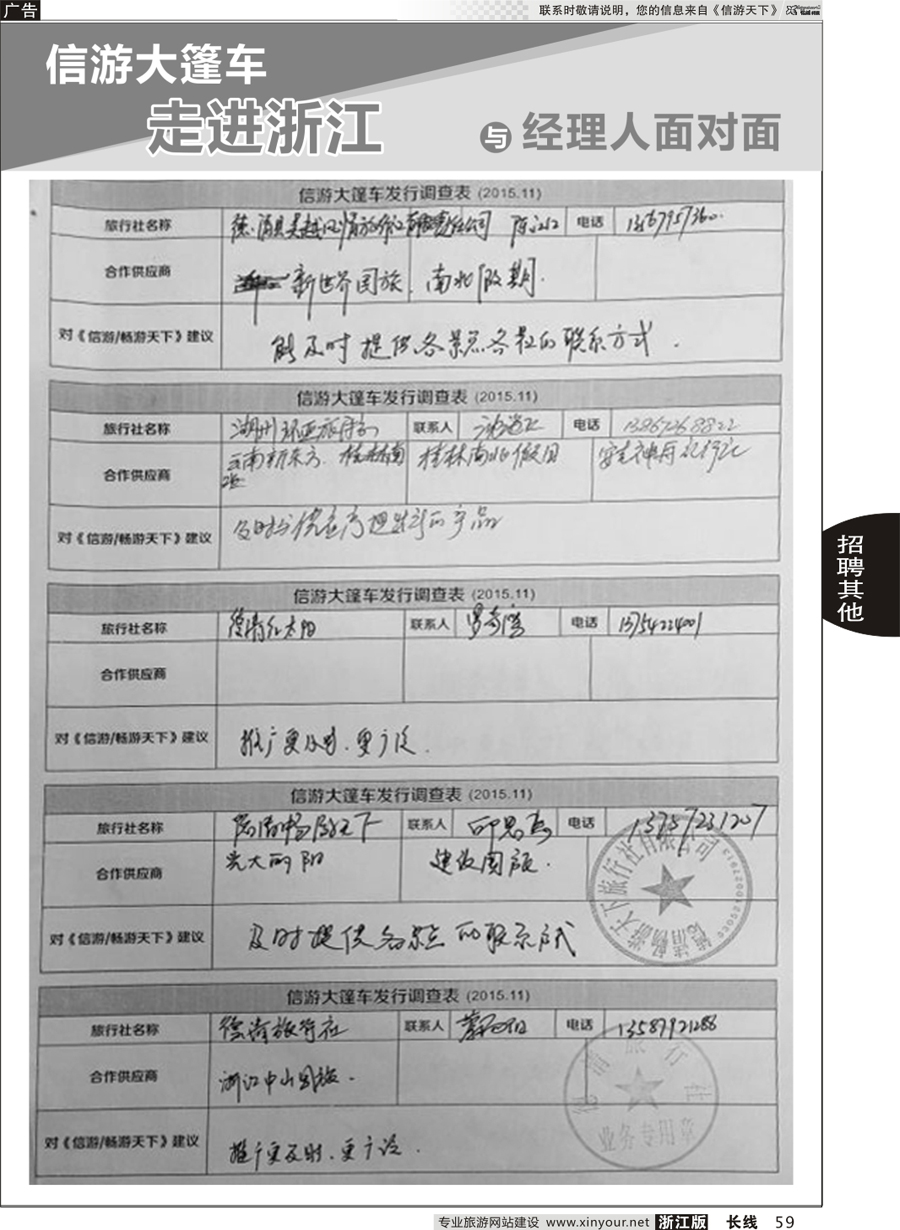 广告
联系时敬请说明，您的信息来自《信游天下》
信游大篷车
走进浙江
与 经理人面对面
信游大篷车发行调查表 (2015.11)
旅行社名称 电话
合作供应商 新世界国旅 南北假期.
对《信游/畅游天下》建议 能及时提供各景点各社的联系方式.
信游大篷车发行调查表 (2015.11)
旅行社名称 湖州环亚旅行社 联系人 电话 13867268822
合作供应商 云南新东方. 桂林南北假日
对《信游/畅游天下》建议 及时 供应商 的产品
信游大篷车发行调查表 (2015.11)
旅行社名称 德清红太阳 联系人 电话 13754224001
合作供应商
对《信游/畅游天下》建议 推广更及时、更广泛.
信游大篷车发行调查表 (2015.11)
旅行社名称 德清畅游天下 联系人 电话 13757231207
合作供应商 建设国旅.
对《信游/畅游天下》建议 及时提供各景点的联系方式
德清畅游天下旅行社有限公司
信游大篷车发行调查表 (2015.11)
旅行社名称 德清旅行社 联系人 电话 13587921286
合作供应商 浙江中山国旅.
对《信游/畅游天下》建议 推广更及时、更广泛.
德清旅行社
业务专用章
招聘其他
专业旅游网站建设 www.xinyour.net 浙江版 长线 59